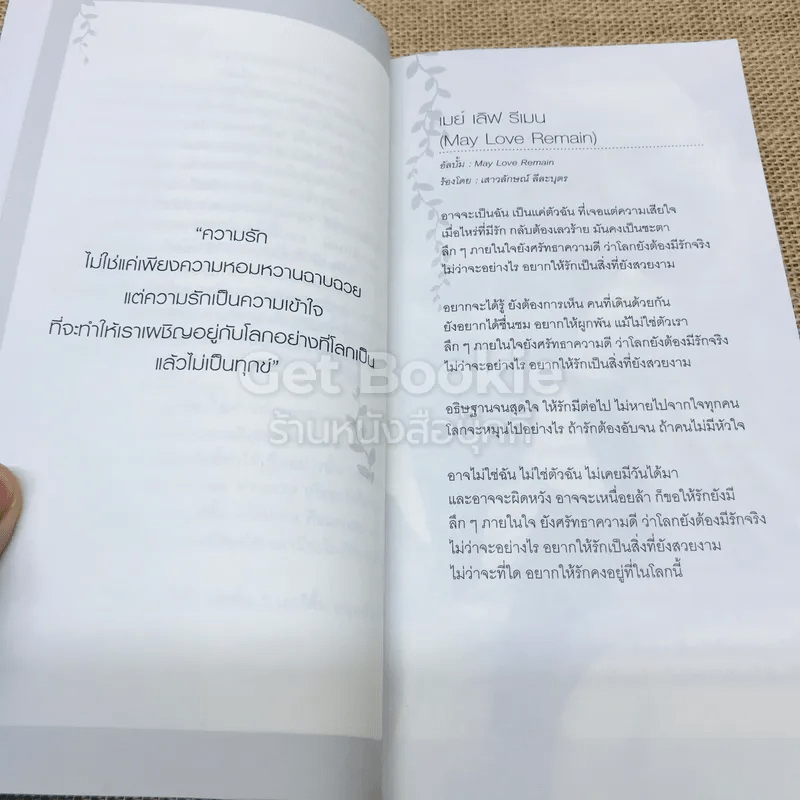 “ความรัก
ไม่ใช่แค่เพียงความหอมหวานฉาบฉวย
แต่ความรักเป็นความเข้าใจ
ที่จะทำให้เราเผชิญอยู่กับโลกอย่างที่โลกเป็น
แล้วไม่เป็นทุกข์”
เมย์ เลิฟ รีเมน
(May Love Remain)
อัลบั้ม : May Love Remain
ร้องโดย : เสาวลักษณ์ ลีละบุตร
อาจจะเป็นฉัน เป็นแค่ตัวฉัน ที่เจอแต่ความเสียใจ
เมื่อไหร่ที่มีรัก กลับต้องเลวร้าย มันคงเป็นชะตา
ลึก ๆ ภายในใจยังศรัทธาความดี ว่าโลกยังต้องมีรักจริง
ไม่ว่าจะอย่างไร อยากให้รักเป็นสิ่งที่ยังสวยงาม
อยากจะได้รู้ ยังต้องการเห็น คนที่เดินด้วยกัน
ยังอยากได้ชื่นชม อยากให้ผูกพัน แม้ไม่ใช่ตัวเรา
ลึก ๆ ภายในใจยังศรัทธาความดี ว่าโลกยังต้องมีรักจริง
ไม่ว่าจะอย่างไร อยากให้รักเป็นสิ่งที่ยังสวยงาม
อธิษฐานจนสุดใจ ให้รักมีต่อไป ไม่หายไปจากใจทุกคน
โลกจะหมุนไปอย่างไร ถ้ารักต้องอับจน ถ้าคนไม่มีหัวใจ
อาจไม่ใช่ฉัน ไม่ใช่ตัวฉัน ไม่เคยมีวันได้มา
และอาจจะผิดหวัง อาจจะเหนื่อยล้า ก็ขอให้รักยังมี
ลึก ๆ ภายในใจ ยังศรัทธาความดี ว่าโลกยังต้องมีรักจริง
ไม่ว่าจะอย่างไร อยากให้รักเป็นสิ่งที่ยังสวยงาม
ไม่ว่าจะที่ใด อยากให้รักคงอยู่ที่ในโลกนี้
Get Bookie
ร้านหนังสือบุคกี้